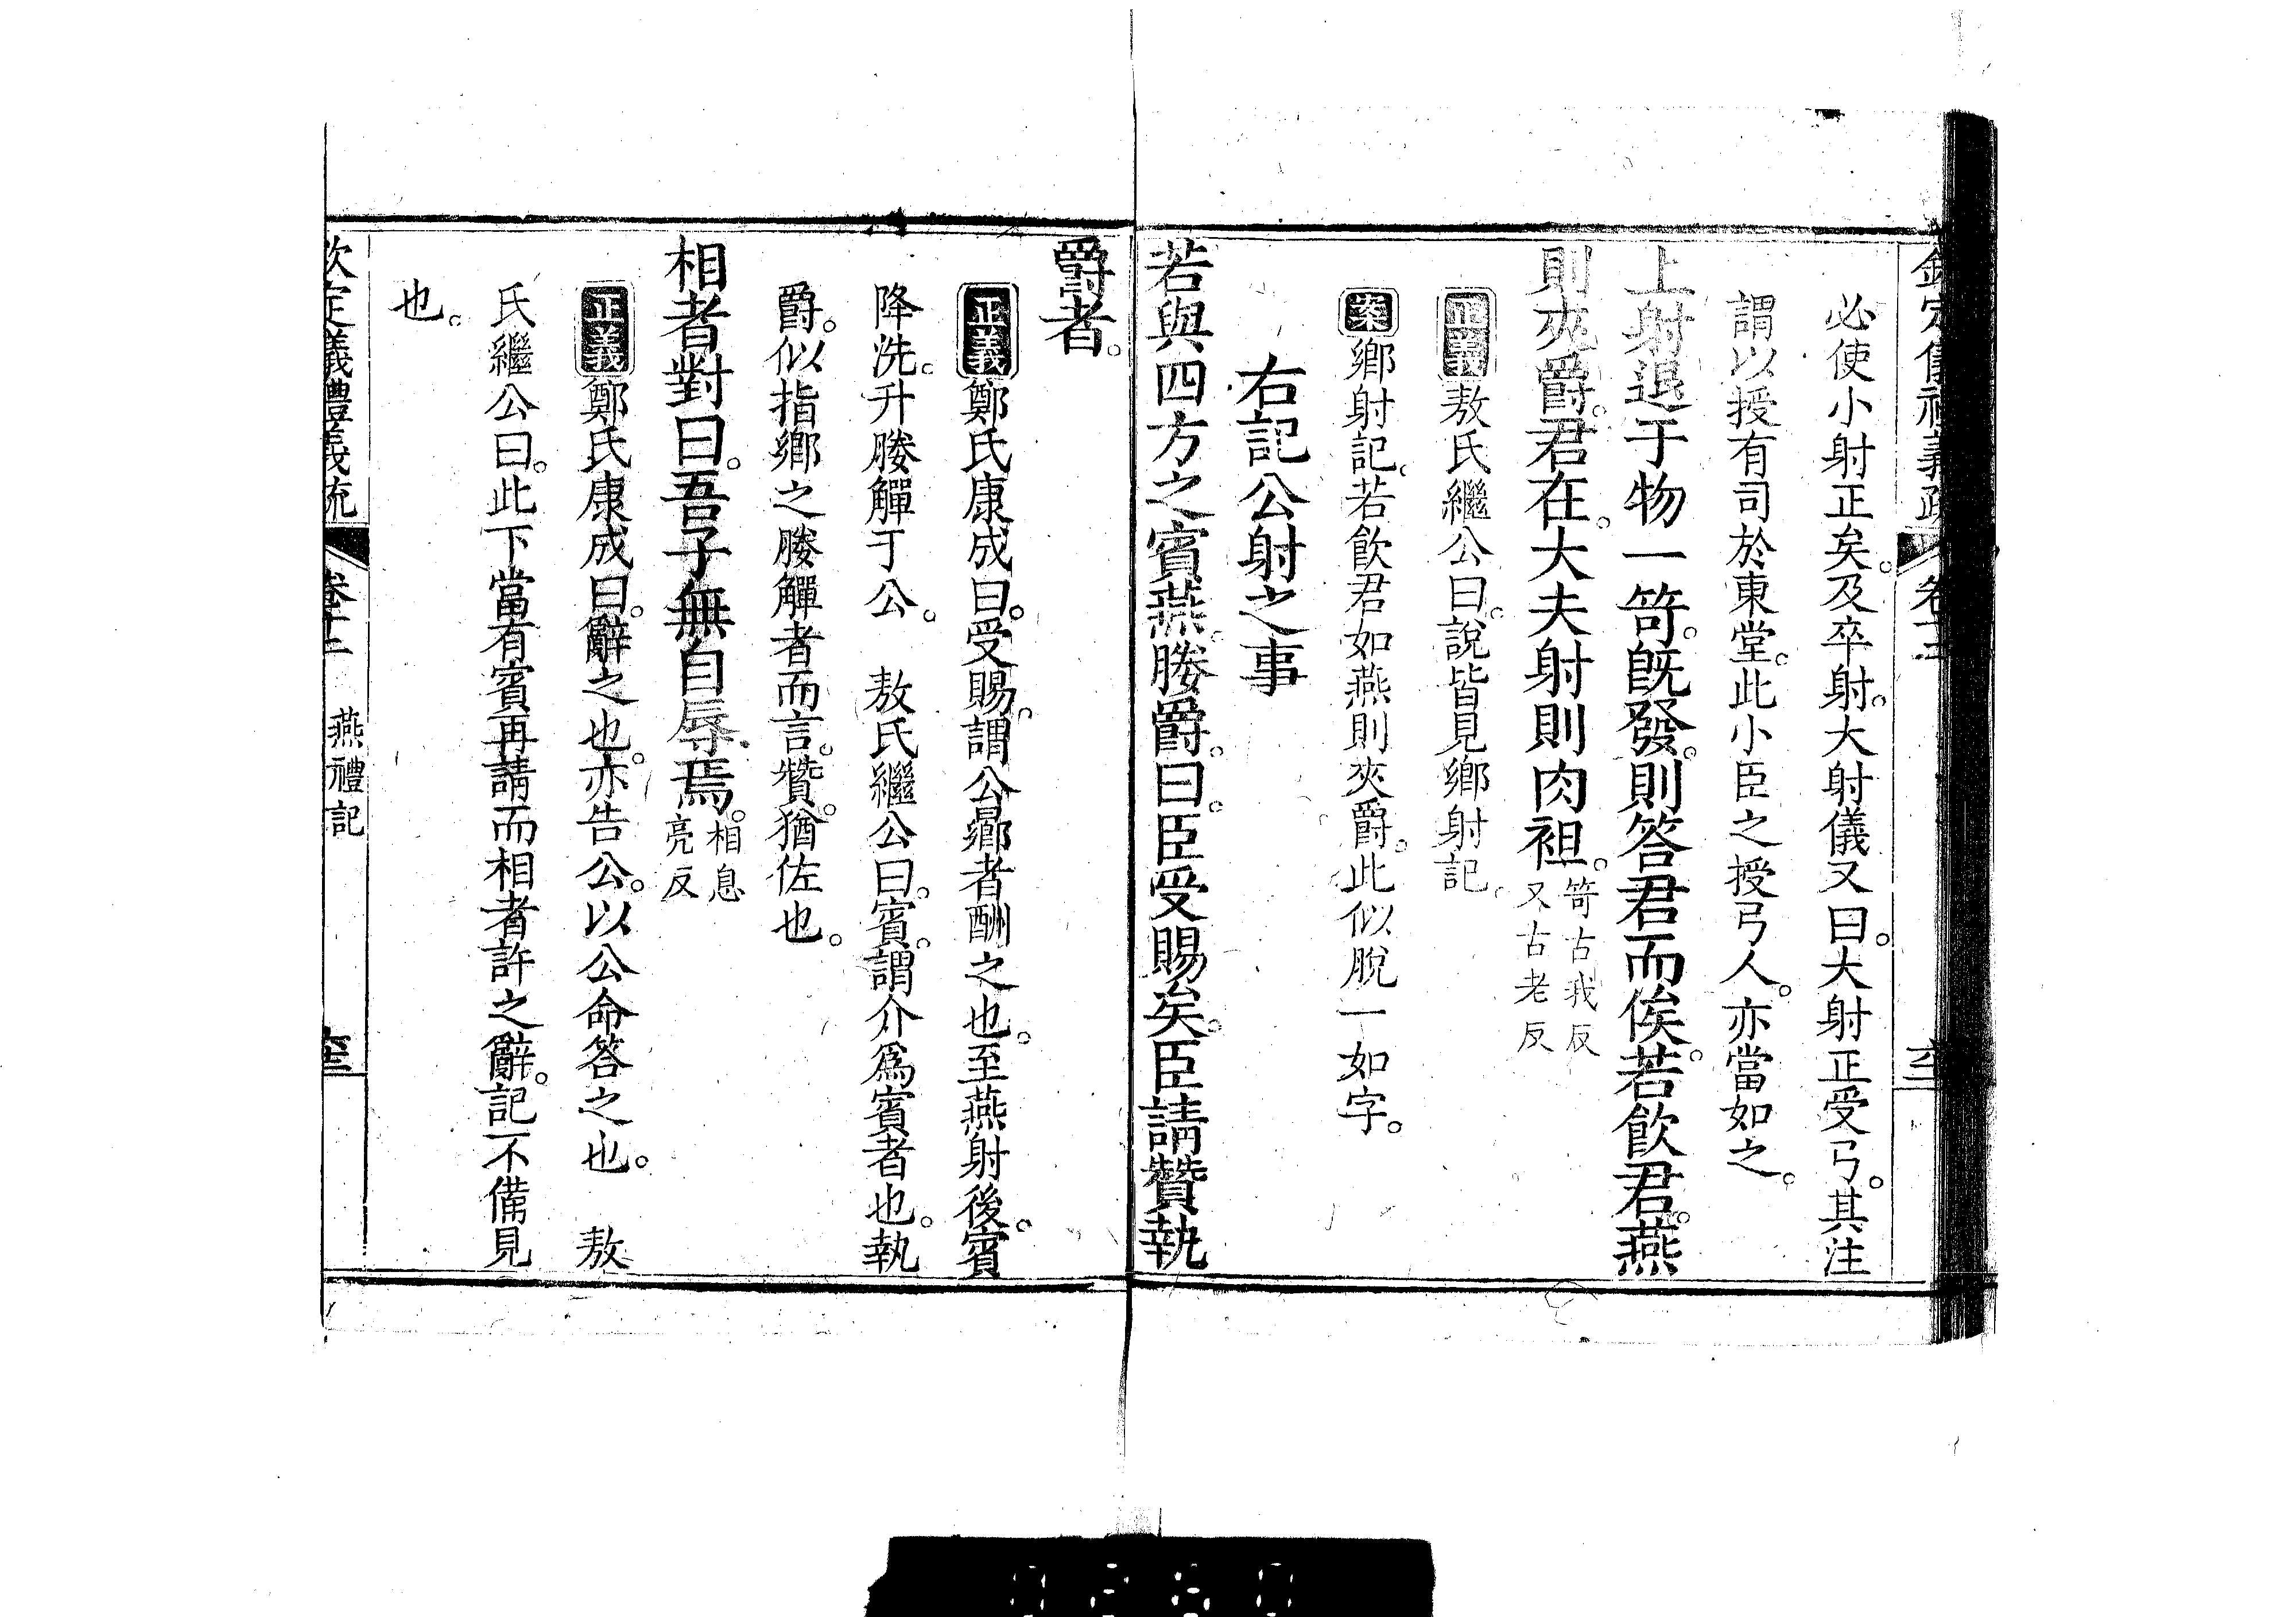 欽定儀禮義疏 卷十二
必使小射正矣。及卒射。大射儀又曰。大射正受弓。其注
謂以授有司於東堂。此小臣之授弓人。亦當如之。
上射退于物一笴。旣發。則答君而俟。若飲君。燕
則夾爵。君在。大夫射則肉袒。笴古我反
又古老反
正義敖氏繼公曰。說皆見鄉射記。
案鄉射記。若飲君如燕則夾爵。此似脫一如字。
右記公射之事
若與四方之賓燕。媵爵。曰。臣受賜矣。臣請贊執
爵者。
正義鄭氏康成曰。受賜。謂公曏者酬之也。至燕射後。賓
降洗。升媵觶于公。 敖氏繼公曰。賓。謂介爲賓者也。執
爵。似指鄉之媵觶者而言。贊。猶佐也。
相者對曰。吾子無自辱焉。相息
亮反
正義鄭氏康成曰。辭之也。亦告公。以公命答之也。 敖
氏繼公曰。此下當有賓再請而相者許之辭。記不備見
也。
欽定儀禮義疏 卷十二 燕禮記